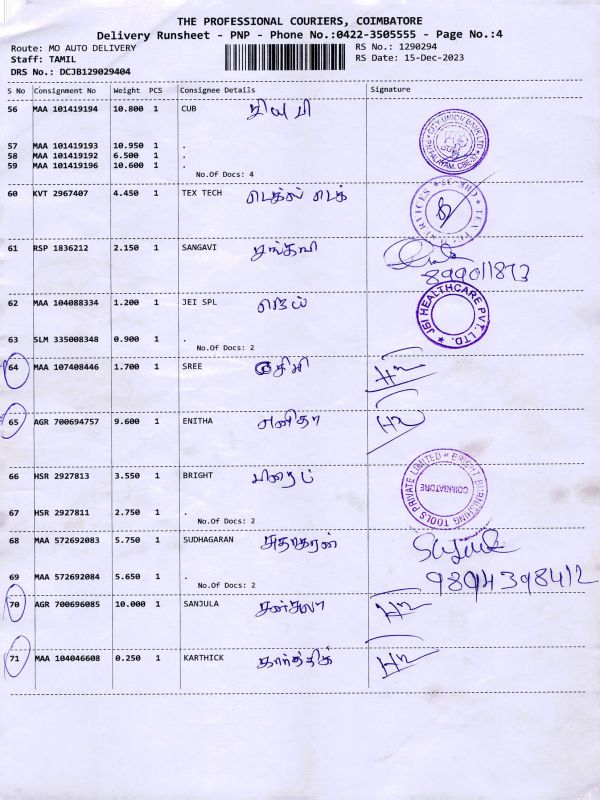 THE PROFESSIONAL COURIERS, COIMBATORE
Delivery Runsheet - PNP - Phone No.:0422-3505555 - Page No.:4
Route: MO AUTO DELIVERY RS No.: 1290294
Staff: TAMIL RS Date: 15-Dec-2023
DRS No.: DCJB129029404
S No Consignment No Weight PCS Consignee Details Signature
56 MAA 101419194 10.800 1 CUB சியுபி
57 MAA 101419193 10.950 1 .
58 MAA 101419192 6.500 1 .
59 MAA 101419196 10.600 1 .
No.Of Docs: 4
CITY UNION BANK LTD
60 KVT 2967407 4.450 1 TEX TECH டெக்ஸ் டெக்
61 RSP 1836212 2.150 1 SANGAVI சங்கவி
899011873
62 MAA 104088334 1.200 1 JEI SPL ஜெய்
JEI HEALTHCARE PVT. LTD.
63 SLM 335008348 0.900 1 .
No.Of Docs: 2
64 MAA 107408446 1.700 1 SREE
65 AGR 700694757 9.600 1 ENITHA அனிதா
66 HSR 2927813 3.550 1 BRIGHT பிரைட்
BRIGHT BURNISHING TOOLS PRIVATE LIMITED
COIMBATORE
67 HSR 2927811 2.750 1 .
No.Of Docs: 2
68 MAA 572692083 5.750 1 SUDHAGARAN சுதாகரன்
69 MAA 572692084 5.650 1 .
9894398412
No.Of Docs: 2
70 AGR 700696085 10.000 1 SANJULA சன்சுலா
71 MAA 104046608 0.250 1 KARTHICK கார்த்திக்